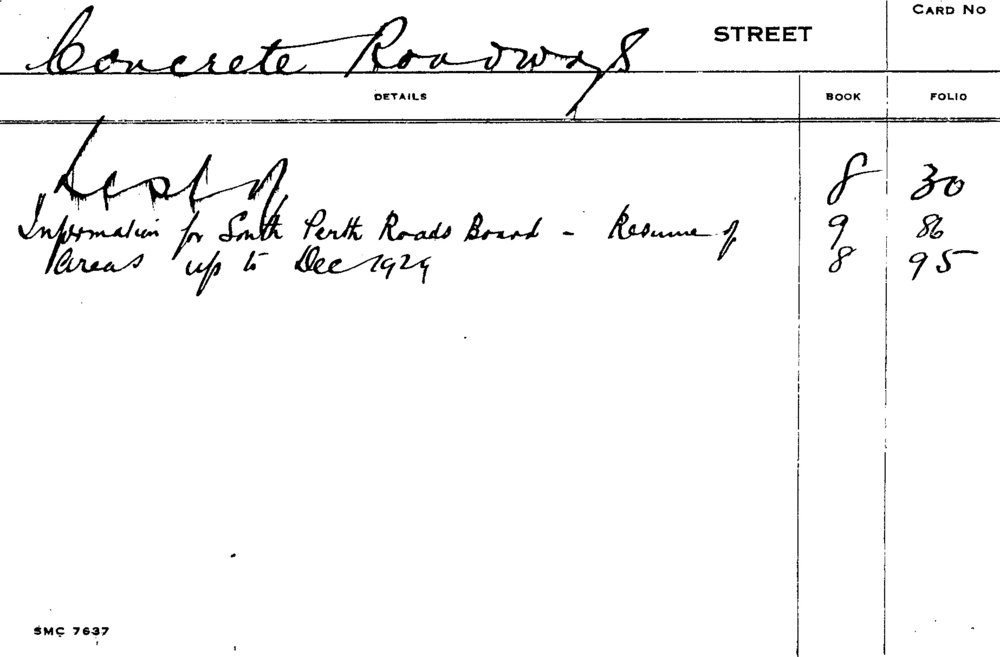 Concrete Roadways STREET CARD NO
DETAILS BOOK FOLIO
of 8 30
Information for South Perth Roads Board - Resume of 9 86
Areas up to Dec 1929 8 95
SMC 7637